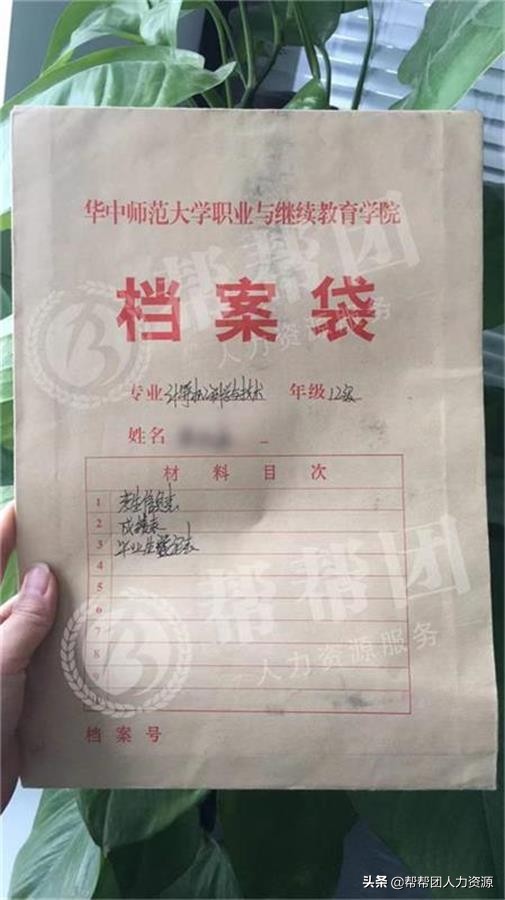 华中师范大学职业与继续教育学院
档案袋
专业 计算机科学与技术 年级 12级
姓名
材料目次
1 考生信息表
2 成绩表
3 毕业生鉴定表
4
5
6
7
8
9
档案号
帮帮团
人力资源服务
帮帮团
人力资源服务
头条 @帮帮团人力资源